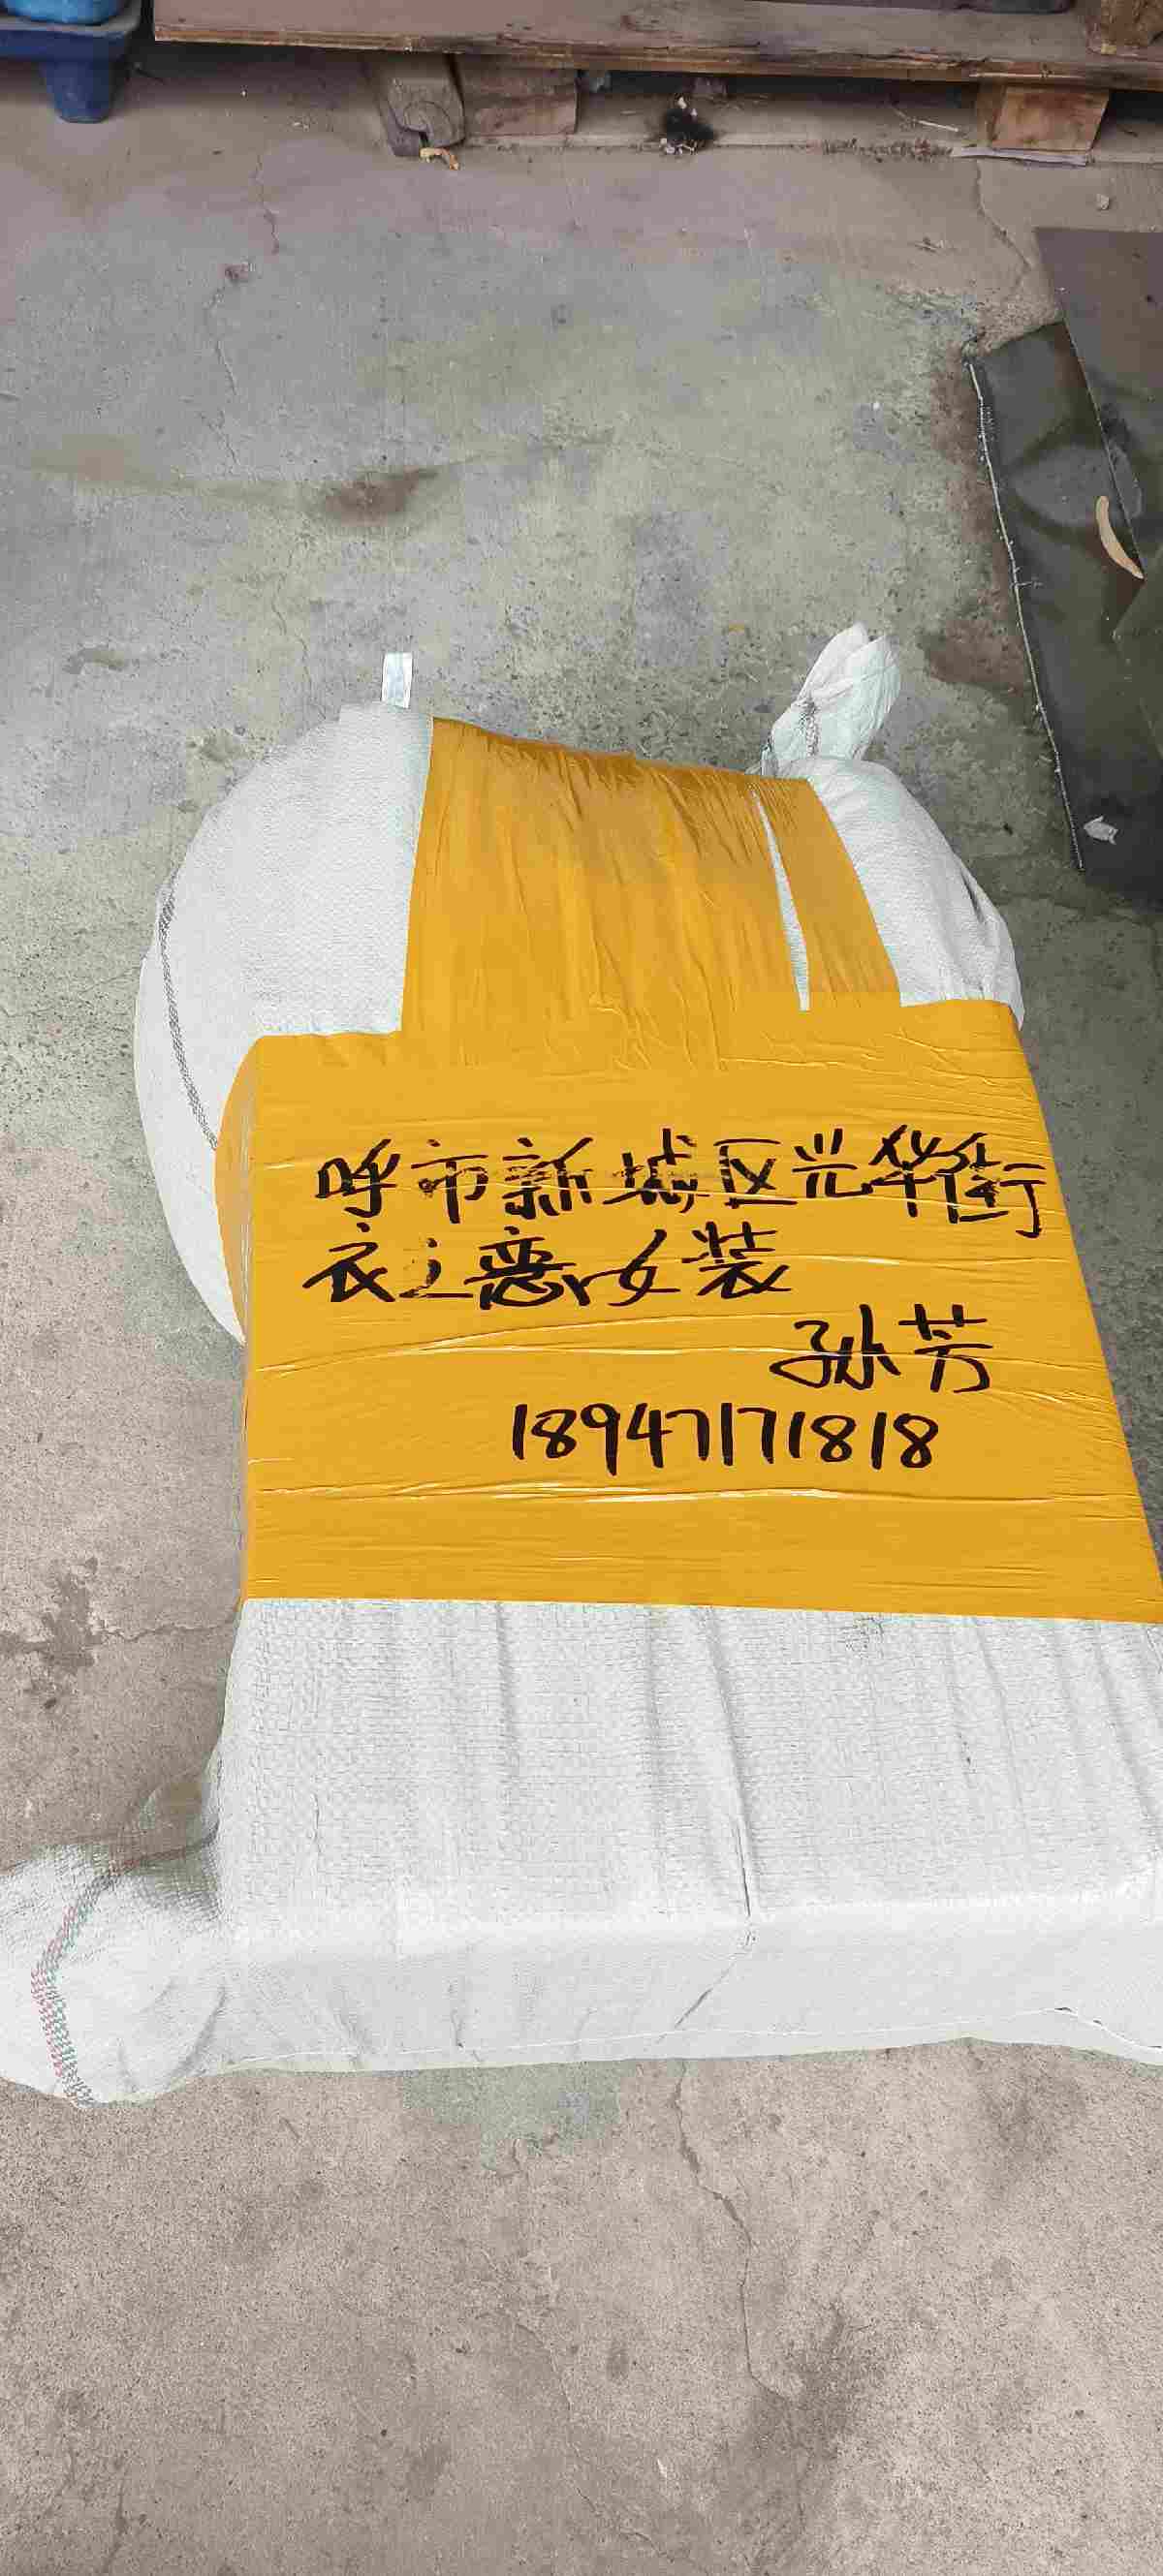 呼市新城区光华街
衣之恋女装
孙芳
18947171818